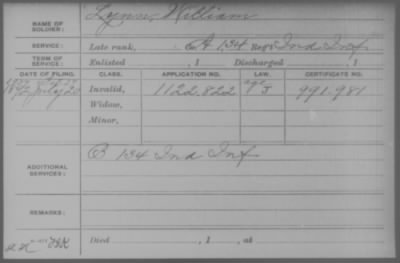 NAME OF SOLDIER: Lynn, William
SERVICE: Late rank, Co. A 134 Reg't Ind Inf
TERM OF SERVICE: Enlisted , 1 Discharged , 1
DATE OF FILING. CLASS. APPLICATION NO. LAW. CERTIFICATE NO.
July 20 Invalid, 1122.822 J 991.981
Widow,
Minor,
ADDITIONAL SERVICES: B 134 Ind Inf
REMARKS:
Died , 1 , at